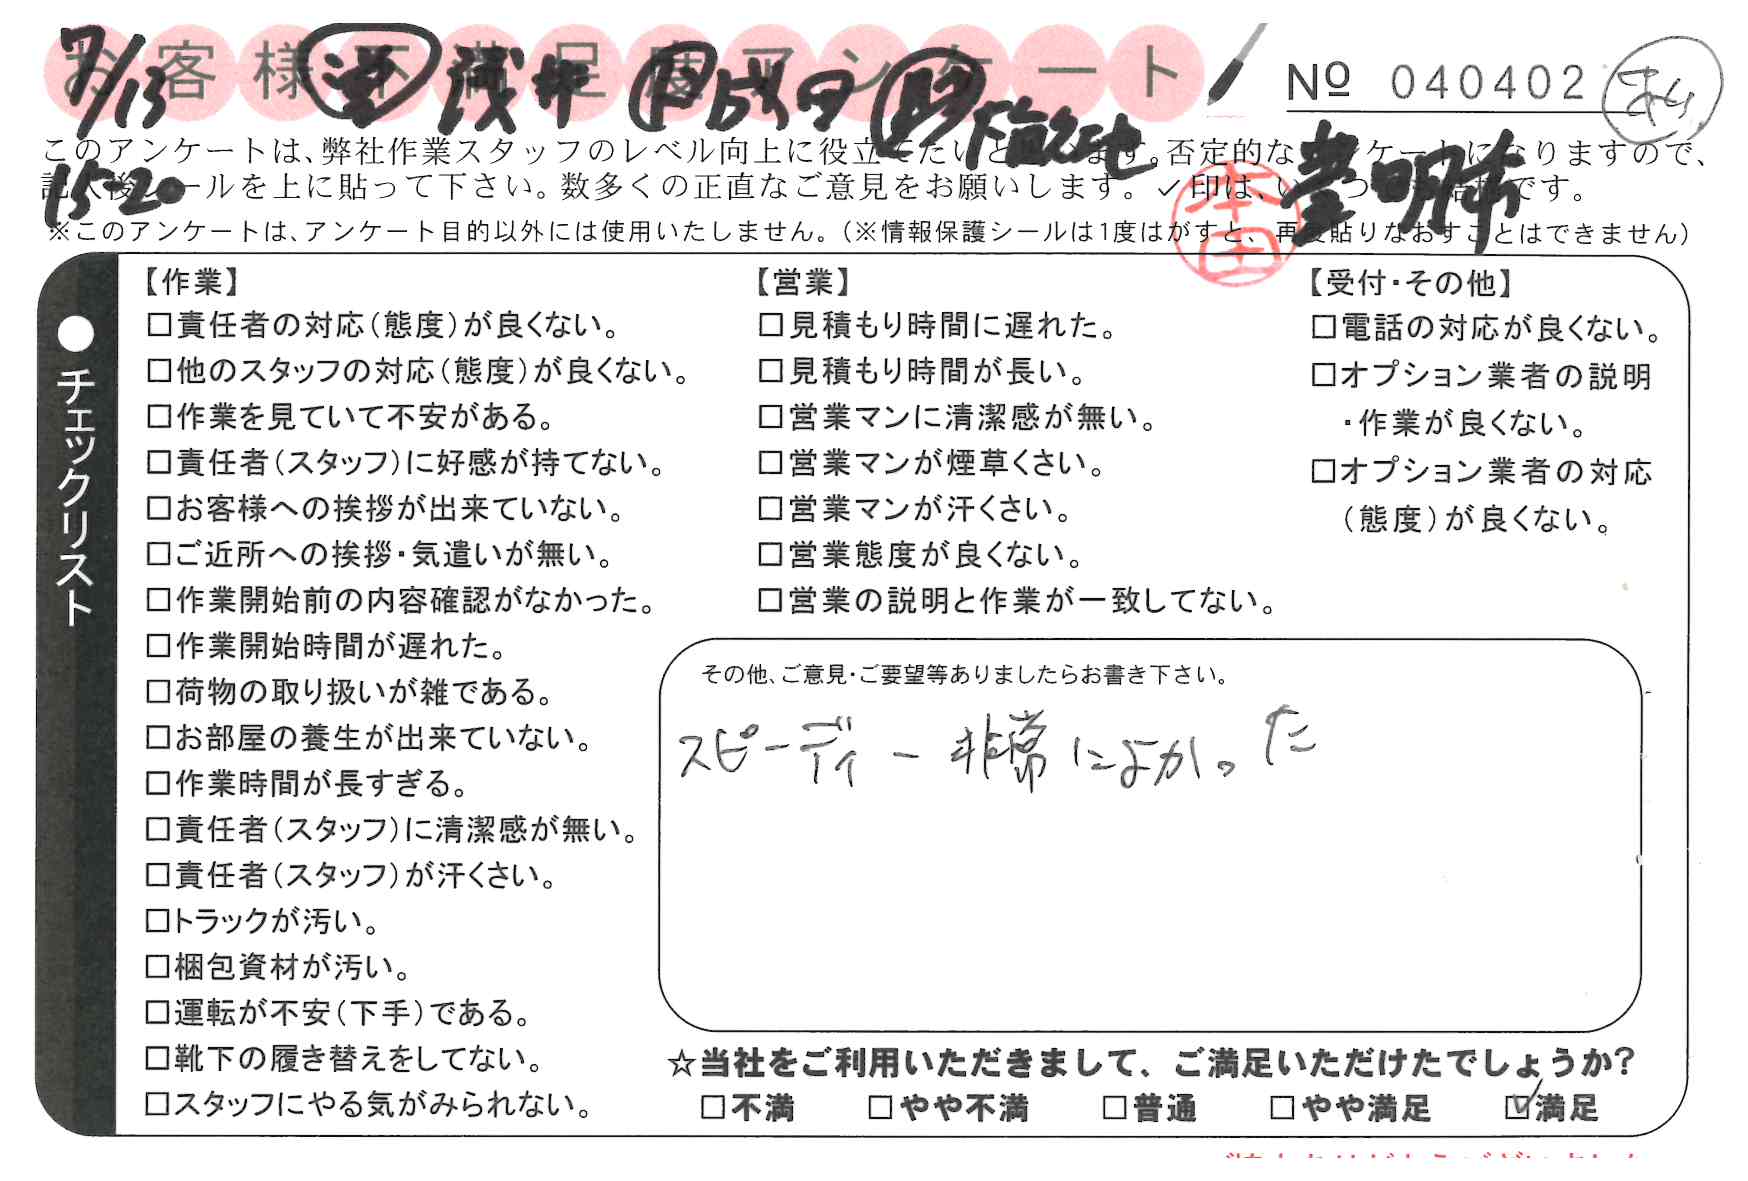 お客様不満足度アンケート
7/13 営 浅井
№ 040402
このアンケートは、弊社作業スタッフのレベル向上に役立てたいと思います。否定的なアンケートになりますので、
記入後シールを上に貼って下さい。数多くの正直なご意見をお願いします。✓印は、いくつでも結構です。
15-20 本田 豊明市
※このアンケートは、アンケート目的以外には使用いたしません。(※情報保護シールは1度はがすと、再度貼りなおすことはできません)
●チェックリスト
【作業】
□責任者の対応(態度)が良くない。
□他のスタッフの対応(態度)が良くない。
□作業を見ていて不安がある。
□責任者(スタッフ)に好感が持てない。
□お客様への挨拶が出来ていない。
□ご近所への挨拶・気遣いが無い。
□作業開始前の内容確認がなかった。
□作業開始時間が遅れた。
□荷物の取り扱いが雑である。
□お部屋の養生が出来ていない。
□作業時間が長すぎる。
□責任者(スタッフ)に清潔感が無い。
□責任者(スタッフ)が汗くさい。
□トラックが汚い。
□梱包資材が汚い。
□運転が不安(下手)である。
□靴下の履き替えをしてない。
□スタッフにやる気がみられない。
【営業】
□見積もり時間に遅れた。
□見積もり時間が長い。
□営業マンに清潔感が無い。
□営業マンが煙草くさい。
□営業マンが汗くさい。
□営業態度が良くない。
□営業の説明と作業が一致してない。
【受付・その他】
□電話の対応が良くない。
□オプション業者の説明
・作業が良くない。
□オプション業者の対応
(態度)が良くない。
その他、ご意見・ご要望等ありましたらお書き下さい。
スピーディー非常によかった
☆当社をご利用いただきまして、ご満足いただけたでしょうか?
□不満 □やや不満 □普通 □やや満足 ☑満足